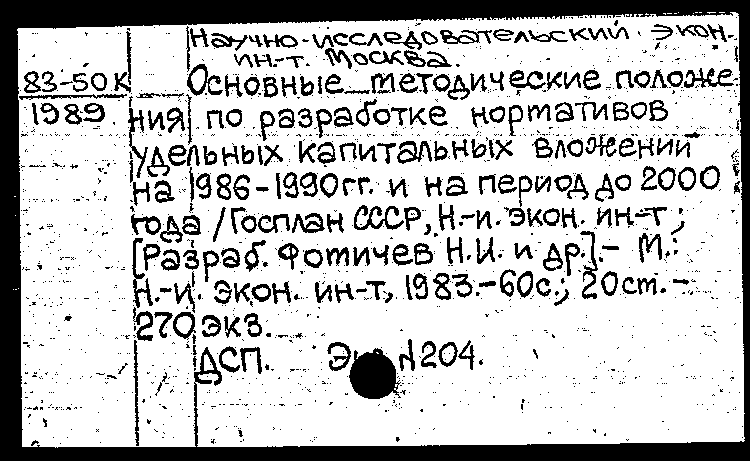 Научно-исследовательский экон.
ин-т. Москва.
83-50К Основные методические положе
1989 ния по разработке нормативов
удельных капитальных вложений
на 1986-1990гг. и на период до 2000
года /Госплан СССР, Н.-и. экон. ин-т;
[Разраб. Фотичев Н.И. и др.].- М.:
Н.-и. экон. ин-т, 1983.-60с.; 20см.-
270 экз.
ДСП. N204.